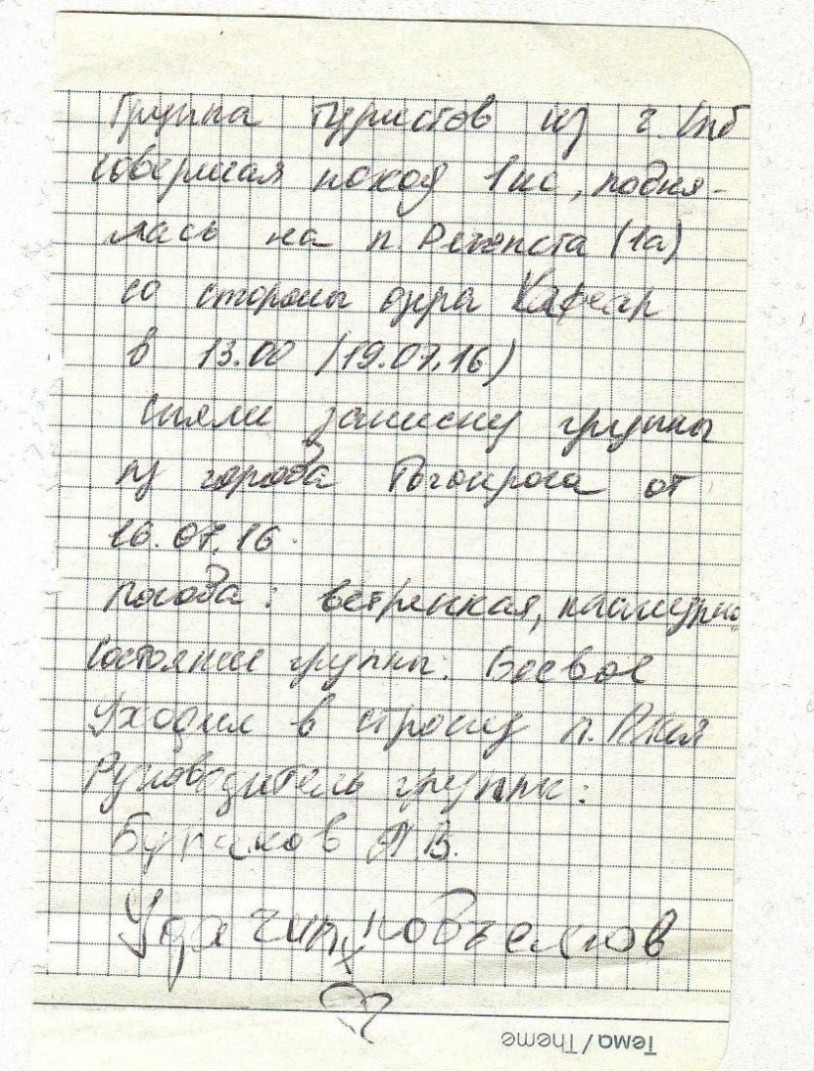 Группа туристов из г. Спб
совершая поход 1кс, подня-
лась на п. Речепста (1а)
со стороны озера Кафар
в 13.00 (19.07.16)
Сняли записку группы
из города Таганрога от
16.07.16.
Погода: ветренная, пасмурно
Состояние группы: Боевое
Уходим в сторону п.
Руководитель группы:
В.
Удачных подъемов
Тема/Theme